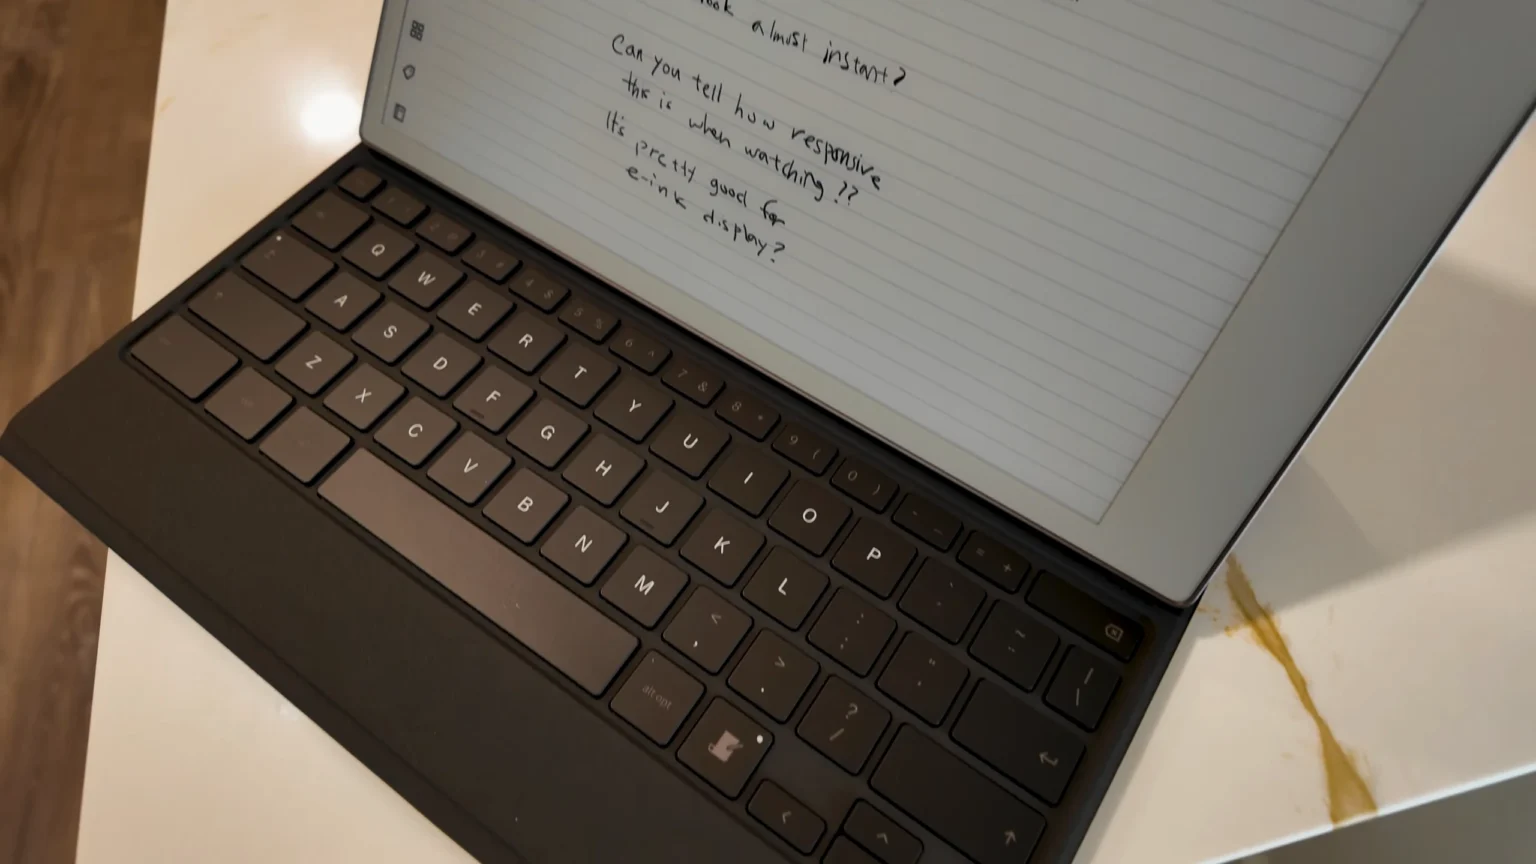 almost instant?
Can you tell how responsive
this is when watching ??
It's pretty good for
e-ink display?
4 $
5 %
6 ^
7 &
8 *
9 (
0 )
- _
= +
Q W E R T Y U I O P
A S D F G H J K L : ;
Z X C V B N M < , > . ? /
alt opt